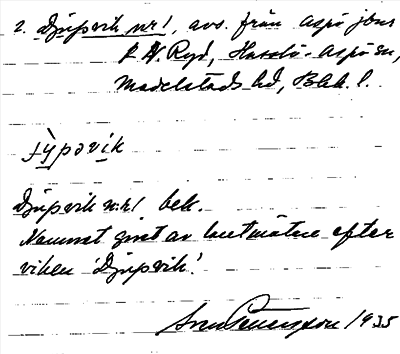 2. Djupvik nr 1, avs. från Aspö jbnr
R H. Ryd, Hasslö-Aspö sn,
Medelstads hd, Blek. l.
jỳpəvik
Djupvik n:r 1 bek.
Namnet givet av lantmätne efter
viken 'Djupvik'.
Sven Benngson 1935